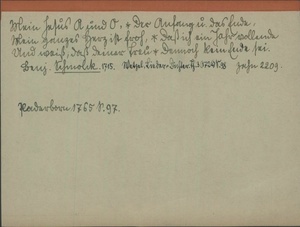 Mein Jesus A und O. * Der Anfang u. das Ende.
Mein ganzes Herz ist froh, * Daß ich ein Jahr vollende
Und weiß, daß deiner Treu * Dennoch kein Ende sei.
Benj. Schmolck. 1715. Wetzel, Lieder- Zahn 2209.
Paderborn 1765 S. 97.